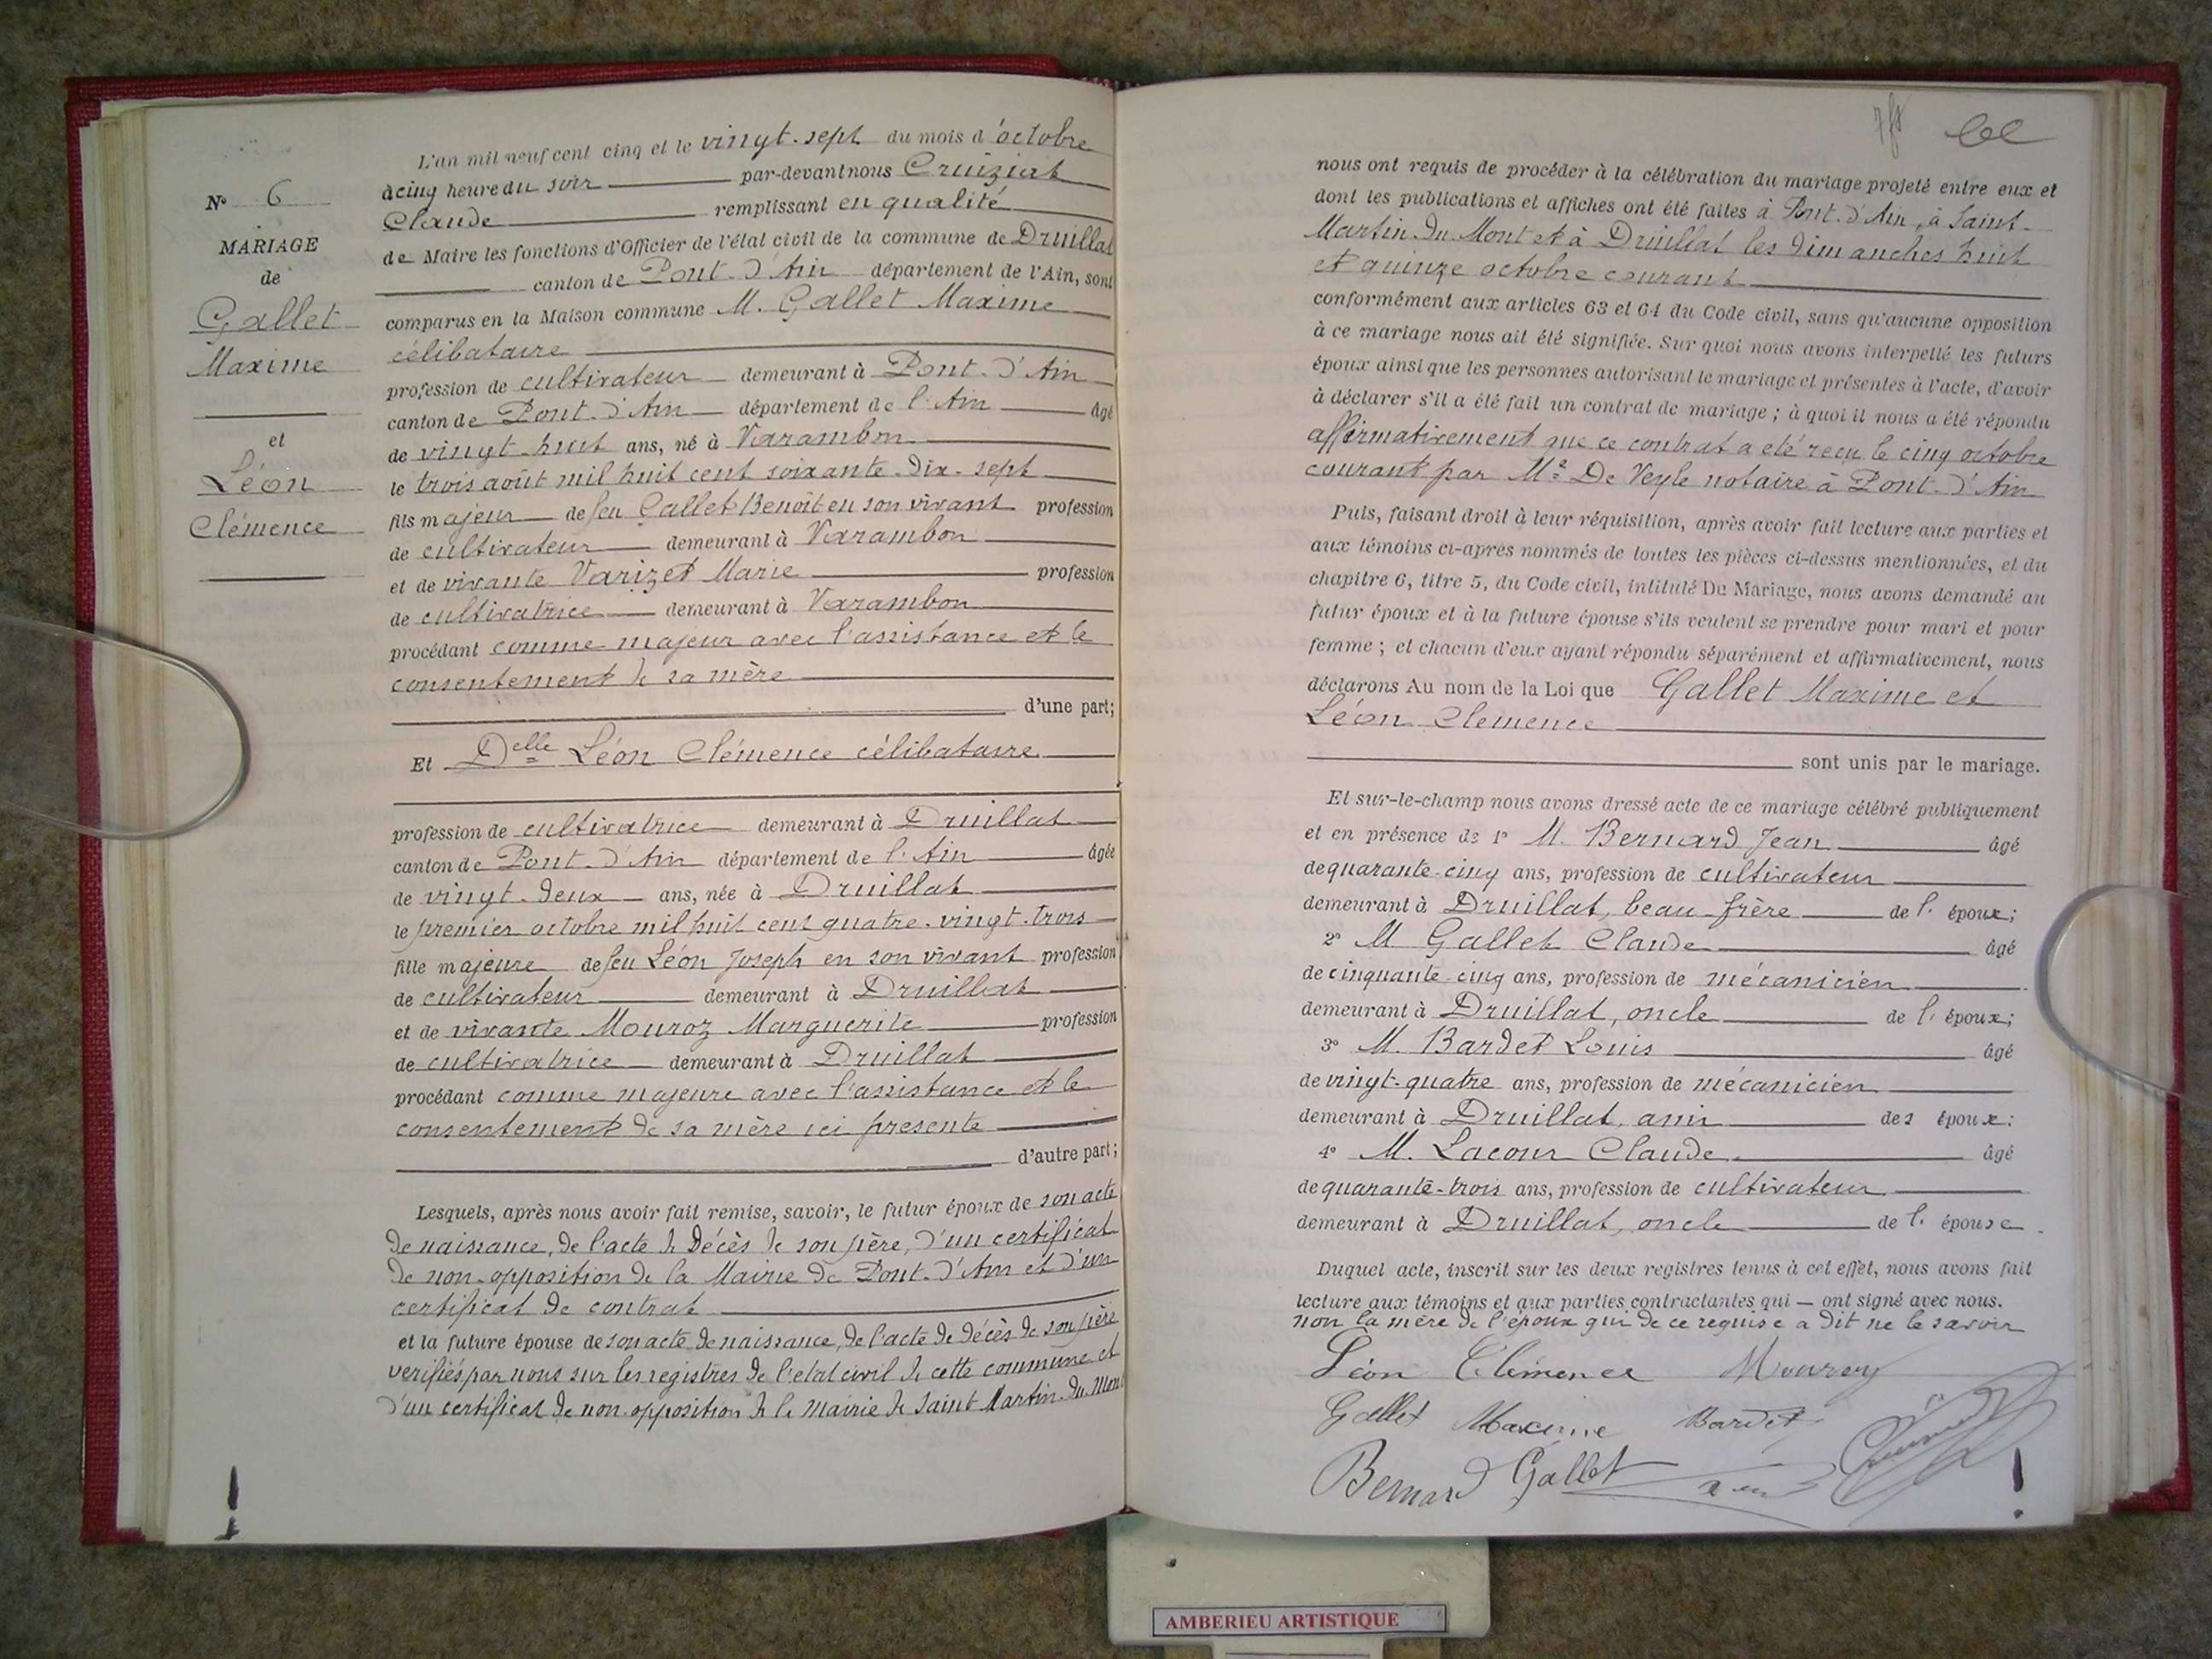 N° 6
MARIAGE
de
Gallet
Maxime
et
Léon
Clémence
L'an mil neuf cent cinq et le vingt-sept du mois d'octobre
à cinq heure du soir par-devant nous Cruiziat
Claude remplissant en qualité
de Maire les fonctions d'Officier de l'état civil de la commune de Druillat
canton de Pont-d'Ain département de l'Ain, sont
comparus en la Maison commune M. Gallet Maxime
célibataire
profession de cultivateur demeurant à Pont-d'Ain
canton de Pont-d'Ain département de l'Ain âgé
de vingt-huit ans, né à Varambon
le trois août mil huit cent soixante-dix-sept
fils majeur de feu Gallet Benoît en son vivant profession
de cultivateur demeurant à Varambon
et de vivante Varizet Marie profession
de cultivatrice demeurant à Varambon
procédant comme majeur avec l'assistance et le
consentement de sa mère
d'une part;
Et Delle Léon Clémence célibataire
profession de cultivatrice demeurant à Druillat
canton de Pont-d'Ain département de l'Ain âgée
de vingt-deux ans, née à Druillat
le premier octobre mil huit cent quatre-vingt-trois
fille majeure de feu Léon Joseph en son vivant profession
de cultivateur demeurant à Druillat
et de vivante Mouroz Marguerite profession
de cultivatrice demeurant à Druillat
procédant comme majeure avec l'assistance et le
consentement de sa mère ici presente
d'autre part;
Lesquels, après nous avoir fait remise, savoir, le futur époux de son acte
de naissance, de l'acte de décès de son père, d'un certificat
de non-opposition de la Mairie de Pont-d'Ain et d'un
certificat de contrat
et la future épouse de son acte de naissance, de l'acte de décès de son père
verifiés par nous sur les registres de l'etat civil de cette commune et
d'un certificat de non-opposition de la mairie de Saint Martin-du-Mont
nous ont requis de procéder à la célébration du mariage projeté entre eux et
dont les publications et affiches ont été faites à Pont-d'Ain, à Saint-
Martin-du-Mont et à Druillat les dimanches huit
et quinze octobre courant
conformément aux articles 63 et 64 du Code civil, sans qu'aucune opposition
à ce mariage nous ait été signifiée. Sur quoi nous avons interpellé les futurs
époux ainsi que les personnes autorisant le mariage et présentes à l'acte, d'avoir
à déclarer s'il a été fait un contrat de mariage ; à quoi il nous a été répondu
affirmativement que ce contrat a eté recu le cinq octobre
courant par Me De Veyle notaire à Pont-d'Ain
Puis, faisant droit à leur réquisition, après avoir fait lecture aux parties et
aux témoins ci-après nommés de toutes les pièces ci-dessus mentionnées, et du
chapitre 6, titre 5, du Code civil, intitulé Du Mariage, nous avons demandé au
futur époux et à la future épouse s'ils veulent se prendre pour mari et pour
femme ; et chacun d'eux ayant répondu séparément et affirmativement, nous
déclarons Au nom de la Loi que Gallet Maxime et
Léon Clemence
sont unis par le mariage.
Et sur-le-champ nous avons dressé acte de ce mariage célébré publiquement
et en présence de 1° M. Bernard Jean âgé
de quarante-cinq ans, profession de cultivateur
demeurant à Druillat, beau-frère de l' époux;
2° M Gallet Claude âgé
de cinquante-cinq ans, profession de mécanicien
demeurant à Druillat, oncle de l' époux;
3° M. Bardet Louis âgé
de vingt-quatre ans, profession de mécanicien
demeurant à Druillat, ami des époux:
4° M. Lacour Claude âgé
de quarante-trois ans, profession de cultivateur
demeurant à Druillat, oncle de l' épouse
Duquel acte, inscrit sur les deux registres tenus à cet effet, nous avons fait
lecture aux témoins et aux parties contractantes qui — ont signé avec nous.
non la mère de l'époux qui de ce requise a dit ne le savoir
Léon Clémence
Gallet Maxime Bardet
Bernard Gallet
AMBERIEU ARTISTIQUE